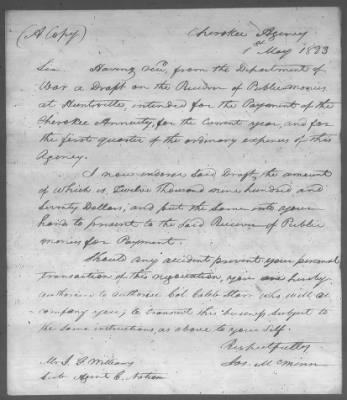 (A Copy)
Cherokee Agency
1st May 1823
Sir Having recd, from the Department of
War a Draft on the Receiver of Public monies
at Huntsville, intended for the Payment of the
Cherokee Annuity, for the Current year, and for
the first quarter of the ordinary expences of this
Agency.
I now endorse said Draft, the amount
of Which is, Twelve thousand nine hundred and
Seventy Dollars, and put the same into your
hands to present to the Said Receiver of Public
monies for Payment.
Should any accident prevent your personal
transaction of this negociation, you are hereby
authorise to authorise Col Caleb Starr who will ac
company you, to transact this business subject to
the same instructions, as above to your self.
Respectfully
Jos. McMinn
Mr. Williams
Sub Agent C. Nation